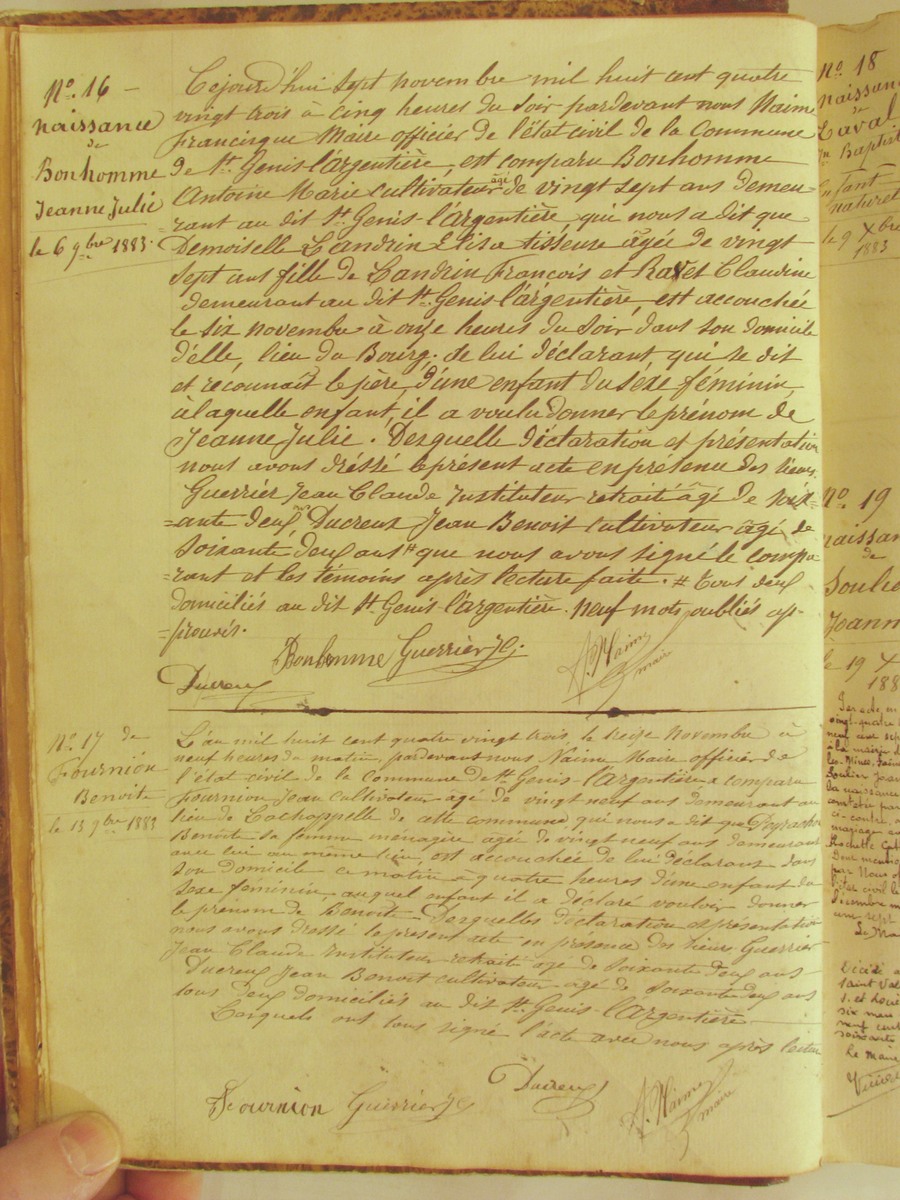 No. 16 -
naissance
de
Bonhomme
Jeanne Julie
le 6 9bre 1883.
Cejourd'hui sept novembre mil huit cent quatre
vingt trois à cinq heures du soir pardevant nous Naime
Francisque Maire officier de l'état civil de la Commune
de St. Genis l'argentière, est comparu Bonhomme
Antoine Marie cultivateur âgé de vingt sept ans demeu=
=rant au dit St. Genis l'argentière qui nous a dit que
Demoiselle Landrin Elisa tisseuse âgée de vingt
sept ans fille de Landrin François et Ravet Claudine
demeurant au dit St. Genis l'argentière, est accouchée
le six novembre à onze heures du soir dans son domicile
d'elle, lieu du Bourg. de lui déclarant qui se dit
et reconnait le père, d'une enfant du séxe féminin,
à laquelle enfant, il a voulu donner le prénom de
Jeanne Julie. Desquelle déclaration et présentation
nous avons dréssé le présent acte en présence des sieurs
Guerrier Jean Claude Instituteur retraité âgé de soix=
=ante deux ans Ducreux Jean Benoit cultivateur âgé de
soixante deux ans # que nous avons signé le compa=
=rant et les témoins après lecture faite. # tous deux
domiciliés au dit St. Genis l'argentière. Neuf mots oubliés ap=
=prouvés.
Bonhomme Guerrier JC.
Ducreux
F. Naime
maire
No. 17 de
Fournion
Benoite
le 13 9bre 1883
L'an mil huit cent quatre vingt trois le treize Novembre à
neuf heures du matin, pardevant nous Naime Maire officier de
l'état civil de la Commune de St. Genis-l'Argentière a comparu
Fournion Jean cultivateur âgé de vingt neuf ans demeurant au
lieu de Lachappelle de cette commune qui nous a dit que
Benoîte sa femme ménagère agée de vingt neuf ans demeurant
avec lui au même lieu, est accouchée de lui déclarant dans
son domicile ce matin à quatre heures d'une enfant du
sexe féminin, auquel enfant il a déclaré vouloir donner
le prénom de Benoite - Desquelles déclaration et présentation
nous avons dressé le présent acte en présence des sieurs Guerrier
Jean Claude Instituteur retraité âgé de soixante deux ans
Ducreux Jean Benoit cultivateur âgé de soixante deux ans
tous deux domiciliés au dit St. Genis-l'Argentière
Lesquels ont tous signé l'acte avec nous après lecture
Fournion Guerrier JC
Ducreux
F. Naime
maire
No. 18
naissan
de
Laval
Jn Baptist
Enfant
naturel
le 9 Xbre
1883
No. 19
naissan
de
Soulie
Joann
le 19 X
188